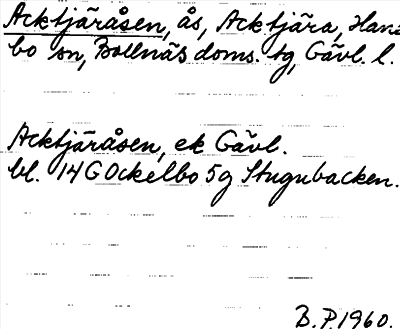 Acktjäråsen, ås, Acktjära, Hane
bo sn, Bollnäs doms. tg, Gävl. l.
Acktjäråsen, ek Gävl.
bl. 14G Ockelbo 5g Stugubacken.
B.P. 1960.